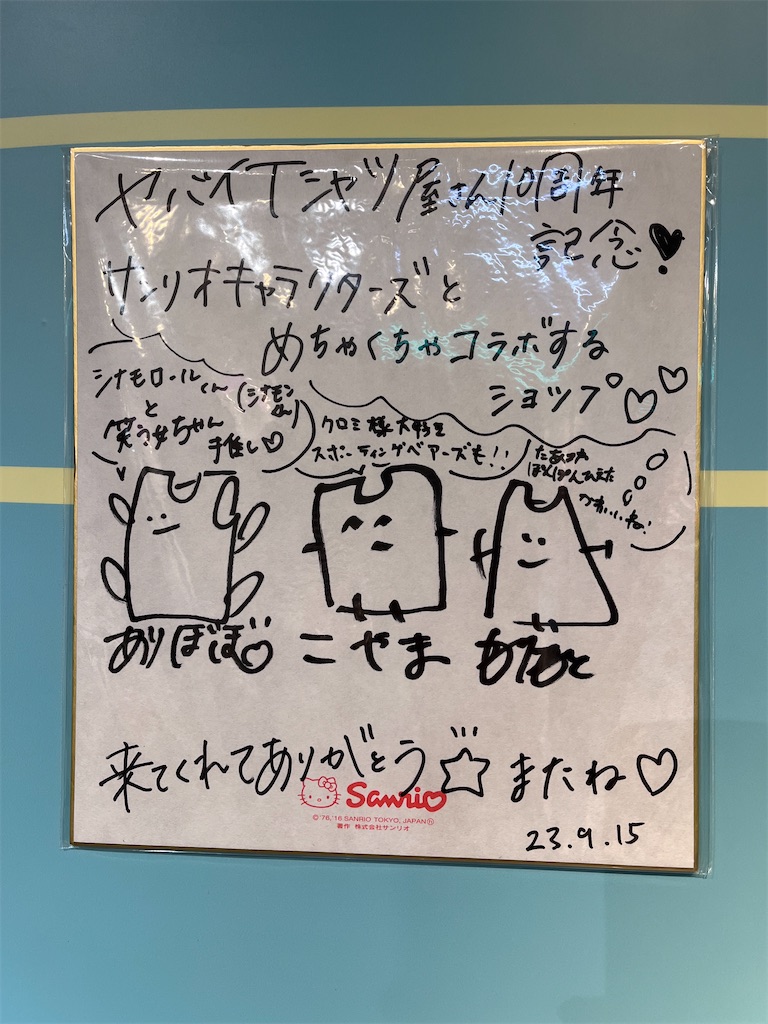 ヤバイTシャツ屋さん10周年
記念♥
サンリオキャラクターズと
めちゃくちゃコラボする
ショップ♡♡
シナモロールくん
(シナモンくん)
と
笑う女ちゃん
推し♡
クロミ様大好き
スポーティングベアーズも!!
たあ坊の
ぽんぽんひえた
かわいいね!
ありぼぼ♡
こやま
もりもと
来てくれてありがとう☆またね♡
Sanrio
©'76,'16 SANRIO TOKYO, JAPAN Ⓗ
著作 株式会社サンリオ
23.9.15